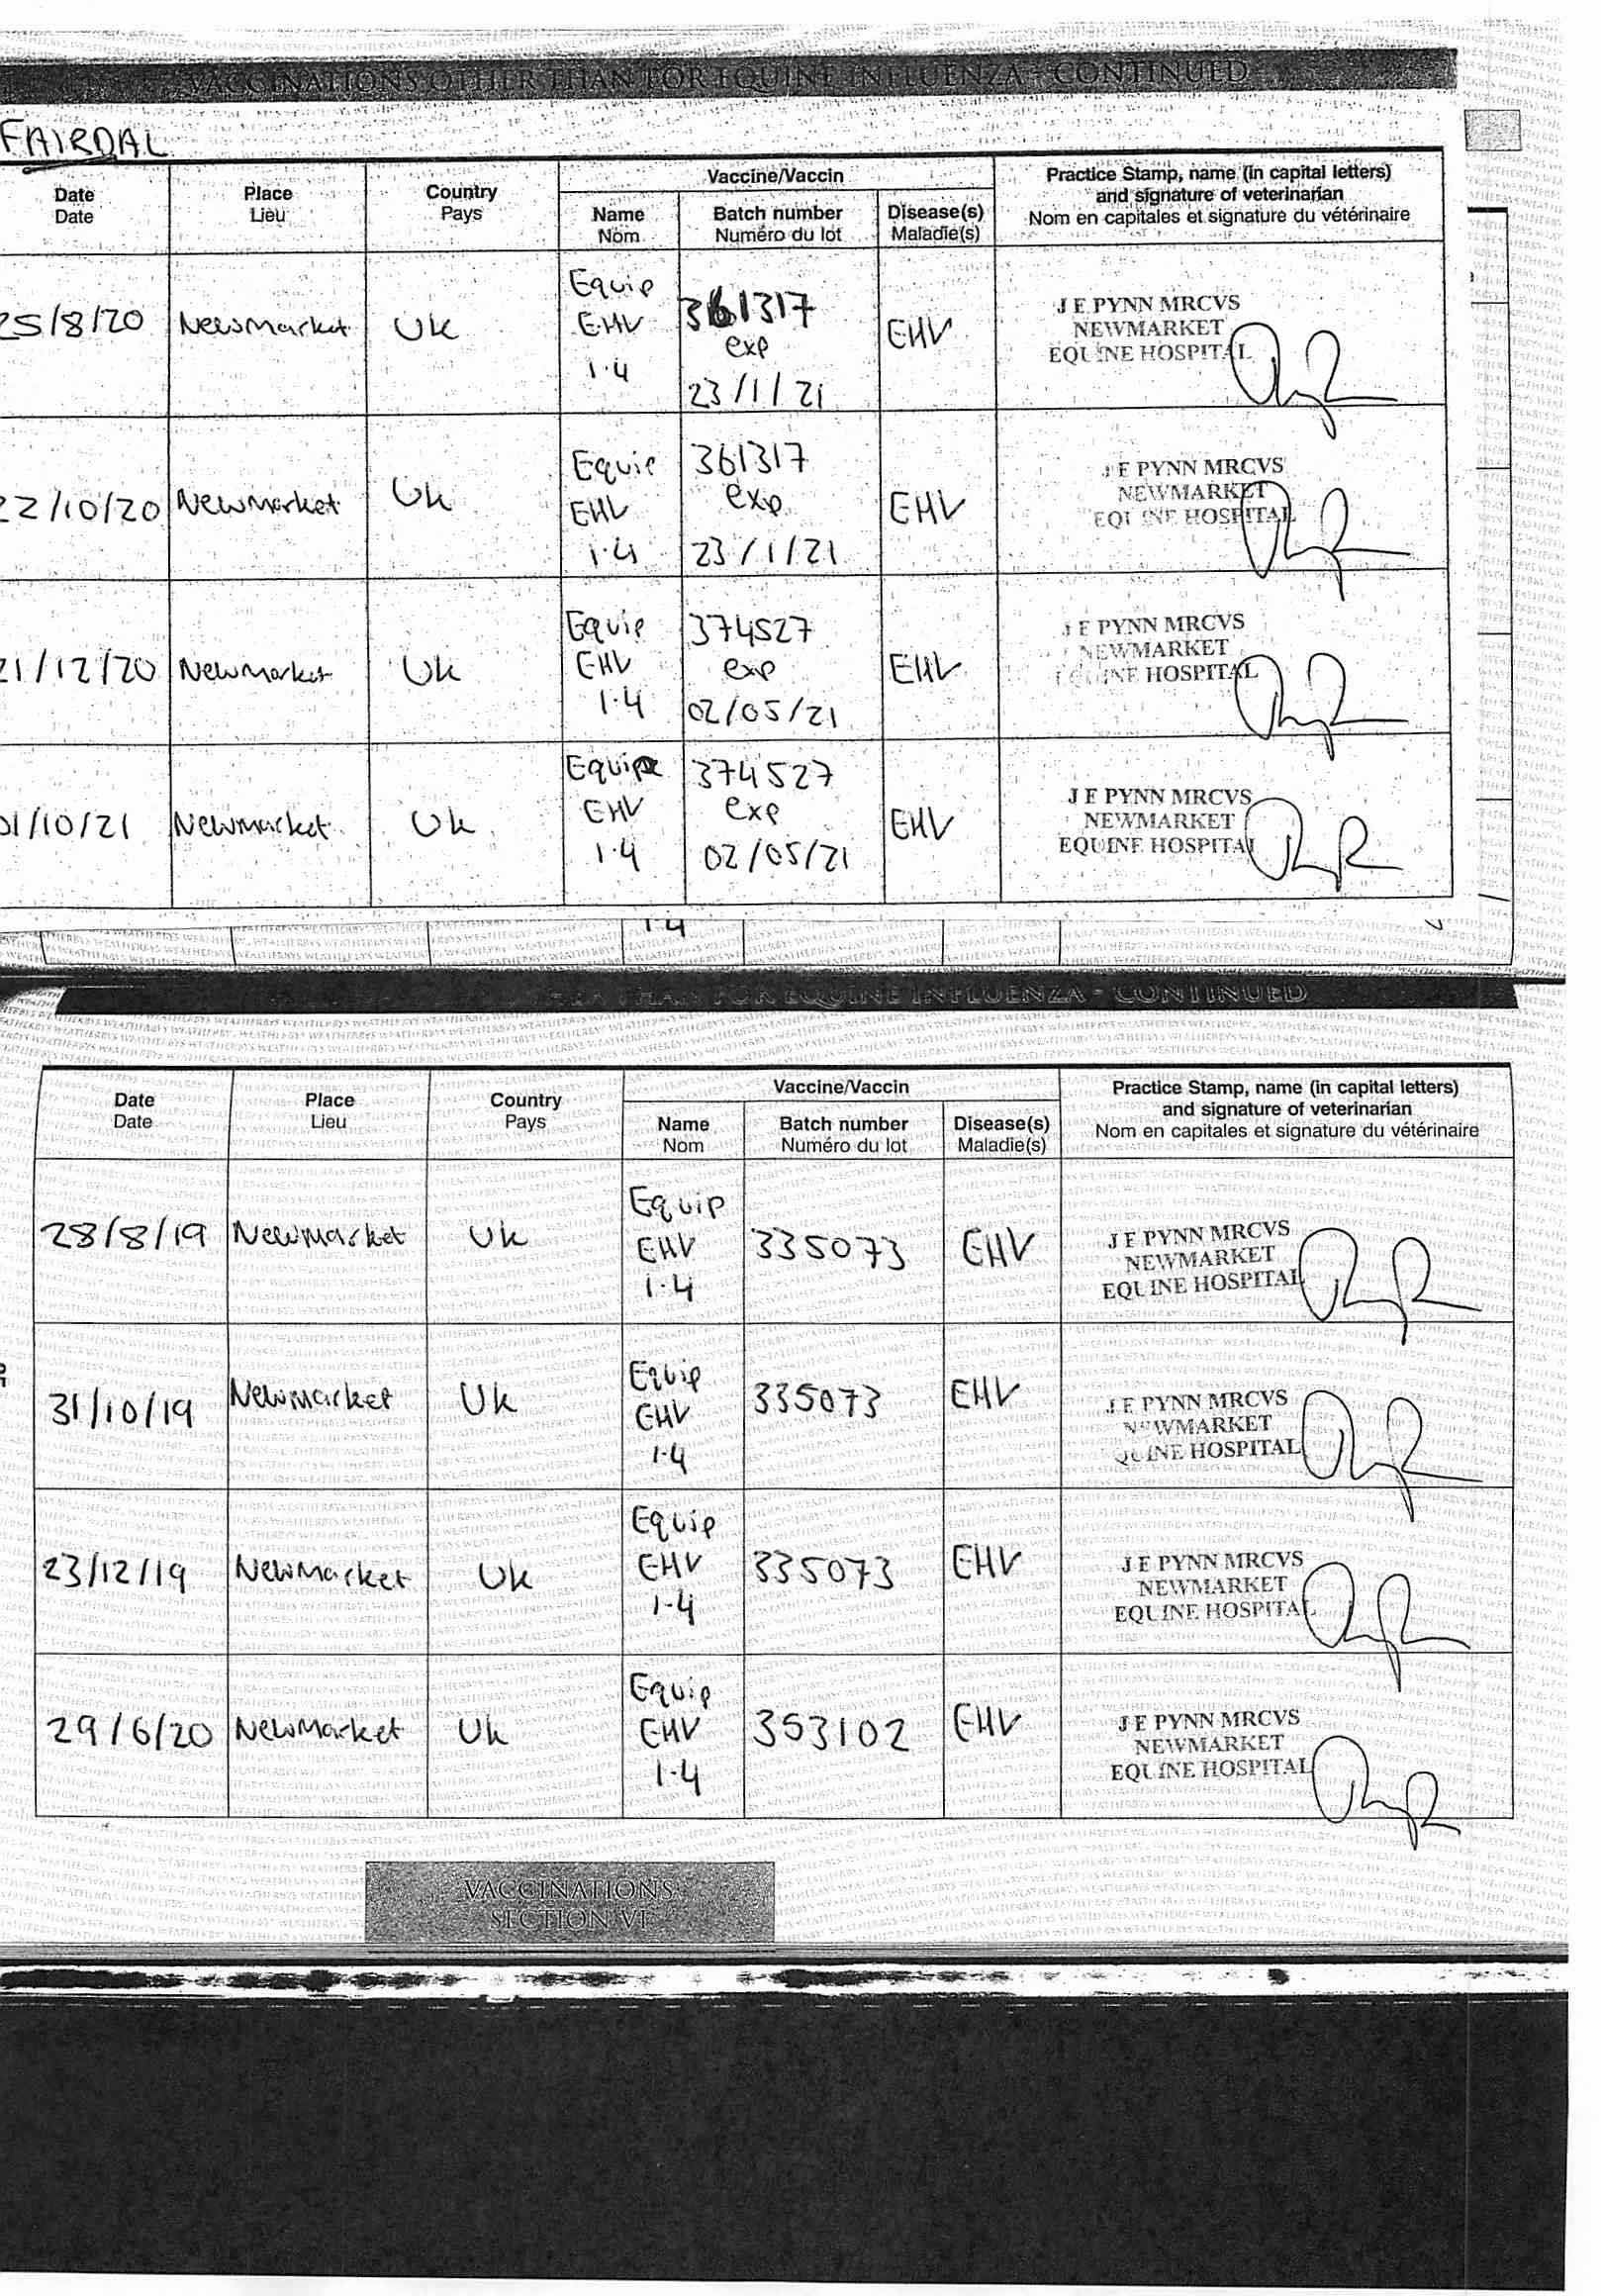 VACCINATIONS OTHER THAN FOR EQUINE INFLUENZA - CONTINUED
FAIRDAL
Date Place Country Vaccine/Vaccin Practice Stamp, name (in capital letters)
Date Lieu Pays and signature of veterinarian
Name Batch number Disease(s) Nom en capitales et signature du vétérinaire
Nom Numéro du lot Maladie(s)
25/8/20 Newmarket Uk Equip EHV 1.4 361317 exp 23/1/21 EHV
J E PYNN MRCVS
NEWMARKET
EQUINE HOSPITAL
22/10/20 Newmarket Uk Equip EHV 1.4 361317 exp 23/1/21 EHV
J E PYNN MRCVS
NEWMARKET
EQUINE HOSPITAL
21/12/20 Newmarket Uk Equip EHV 1.4 374527 exp 02/05/21 EHV
J E PYNN MRCVS
NEWMARKET
EQUINE HOSPITAL
01/10/21 Newmarket Uk Equip EHV 1.4 374527 exp 02/05/21 EHV
J E PYNN MRCVS
NEWMARKET
EQUINE HOSPITAL
1.4
THAN FOR EQUINE INFLUENZA - CONTINUED
Date Place Country Vaccine/Vaccin Practice Stamp, name (in capital letters)
Date Lieu Pays and signature of veterinarian
Name Batch number Disease(s) Nom en capitales et signature du vétérinaire
Nom Numéro du lot Maladie(s)
28/8/19 Newmarket Uk Equip EHV 1.4 335073 EHV
J E PYNN MRCVS
NEWMARKET
EQUINE HOSPITAL
31/10/19 Newmarket Uk Equip EHV 1.4 335073 EHV
J E PYNN MRCVS
NEWMARKET
EQUINE HOSPITAL
23/12/19 Newmarket Uk Equip EHV 1.4 335073 EHV
J E PYNN MRCVS
NEWMARKET
EQUINE HOSPITAL
29/6/20 Newmarket Uk Equip EHV 1.4 353102 EHV
J E PYNN MRCVS
NEWMARKET
EQUINE HOSPITAL
VACCINATIONS
SECTION VI